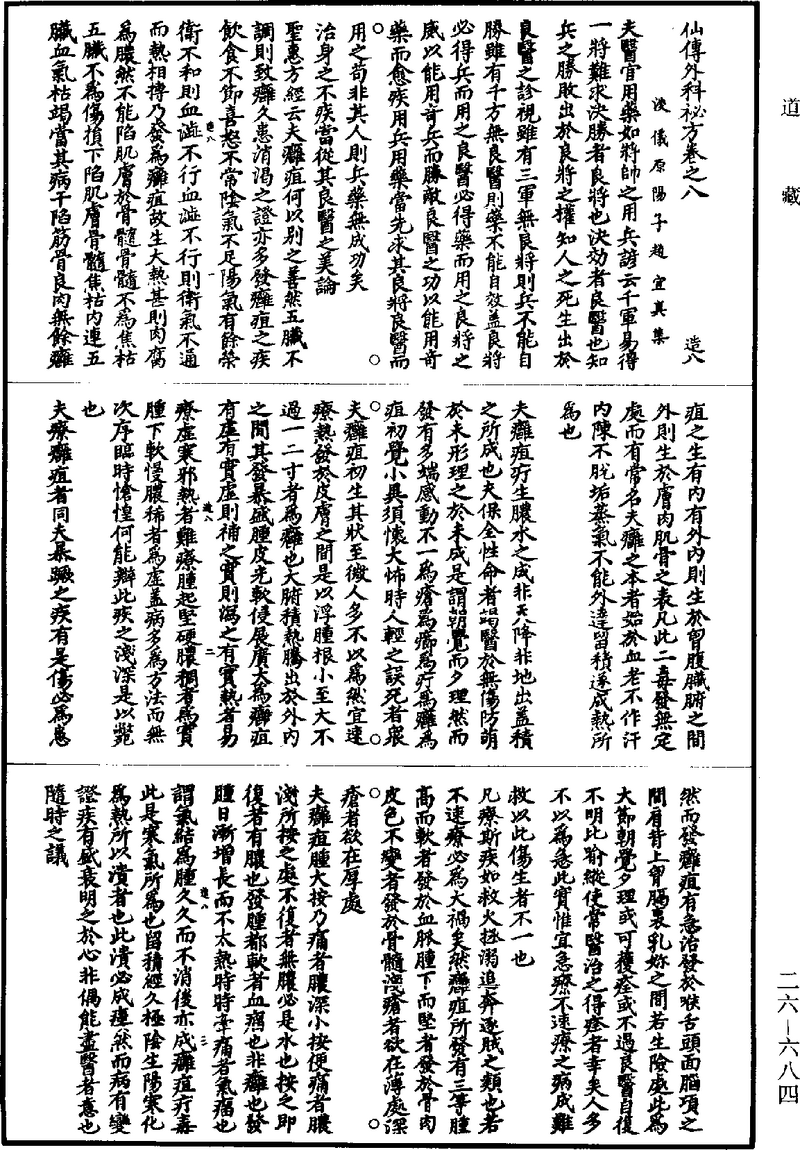 道藏
仙傳外科祕方卷之八
造八
浚儀原陽子趙宜真集
夫醫官用藥如將帥之用兵諺云千軍易得
一將難求決勝者良將也決効者良醫也知
兵之勝敗出於良將之權知人之死生出於
良醫之診視雖有三軍無良將則兵不能自
勝雖有千方無良醫則藥不能自效蓋良將
必得兵而用之良醫必得藥而用之良將之
威以能用奇兵而勝敵良醫之功以能用奇
藥而愈疾用兵用藥當先求其良將良醫而
用之苟非其人則兵藥無成功矣
治身之不疾當從其良醫之美論
聖惠方經云夫癰疽何以别之善然五臟不
調則致癰久患消渴之證亦多發癰疽之疾
飲食不節喜怒不常陰氣不足陽氣有餘榮
衛不和則血澁不行血澁不行則衛氣不通
而熱相摶乃發為癰疽故生大熱甚則肉腐
為膿然不能陷肌膚於骨髓骨髓不為焦枯
五臟不為傷損下陷肌膚骨髓焦枯内連五
臟血氣枯竭當其病干陷筋骨良肉無餘癰
造八
一
疽之生有内有外内則生於胷腹臟腑之間
外則生於膚肉肌骨之表凡此二毒發無定
處而有常名夫癰之本者始於血老不作汗
内陳不脱垢蒸氣不能外達留積遂成熱所
為也
夫癰疽疔生膿水之成非天降非地出蓋積
之所成也夫保全性命者竭醫於無傷防萌
於未形理之於未成是謂朝覺而夕理然而
發有多端感動不一為瘡為癤為疔為癰為
疽初覺小異須懷大怖時人輕之誤死者衆
夫癰疽初生其狀至微人多不以為然宜速
療熱發於皮膚之間是以浮腫根小至大不
過一二寸者為癰也大腑積熱騰出於外内
之間其發暴盛腫皮光軟侵展廣大為癰疽
有虛有實虛則補之實則瀉之有實熱者易
療虛寒邪熱者難療腫起堅硬膿稠者為實
腫下軟慢膿稀者為虛蓋病多為方法而無
次序臨時愴惶何能辯此疾之淺深是以斃
也
夫療癰疽者同夫暴蹶之疾有是傷必為患
造八
二
然而發癰疽有急治發於喉舌頭面腦項之
間肩背上胷膈裹乳妳之間若生險處此為
大節朝覺夕理或可獲痊或不遇良醫自復
不明比喻縱使常醫治之得痊者幸矣人多
不以為急此實惟宜急療不速療之病成難
救以此傷生者不一也
凡療斯疾如救火拯溺追奔逐賊之類也若
不速療必為大禍矣然癰疽所發有三等腫
高而軟者發於血脉腫下而堅者發於骨肉
皮色不變者發於骨髓淺瘡者欲在薄處深
瘡者欲在厚處
夫癰疽腫大按乃痛者膿深小按便痛者膿
淺所按之處不復者無膿必是水也按之即
復者有膿也發腫都軟者血瘤也非癰也發
腫日漸增長而不太熱時時牽痛者氣瘤也
謂氣結為腫久久而不消後亦成癰疽疔毒
此是寒氣所為也留積經久極陰生陽寒化
為熱所以潰者也此潰必成瘻然而病有變
證疾有盛衰明之於心非偶能盡醫者意也
隨時之議
造八
三
二六—六八四